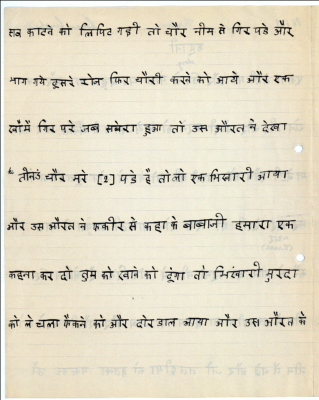 सब काटने को लिपिट गही तो चौर नीम से गिर पडे और
भाग गये दूसरे रोज फिर चौरी करने को आये और एक
खॉमें गिर परे जब सबेरा हुआ तो उस औरत ने देखा
के तीनउं चौर मरे [2] पडे है तो जो एक भिखारी आया
और उस औरत ने फकीर से कहा के बाबाजी हमारा एक
कहना कर दो तुम को खाने को दूंगा तो भिखारी मुरदा
को ले चला फैकने को और दोर डाल आया और उस औरत के